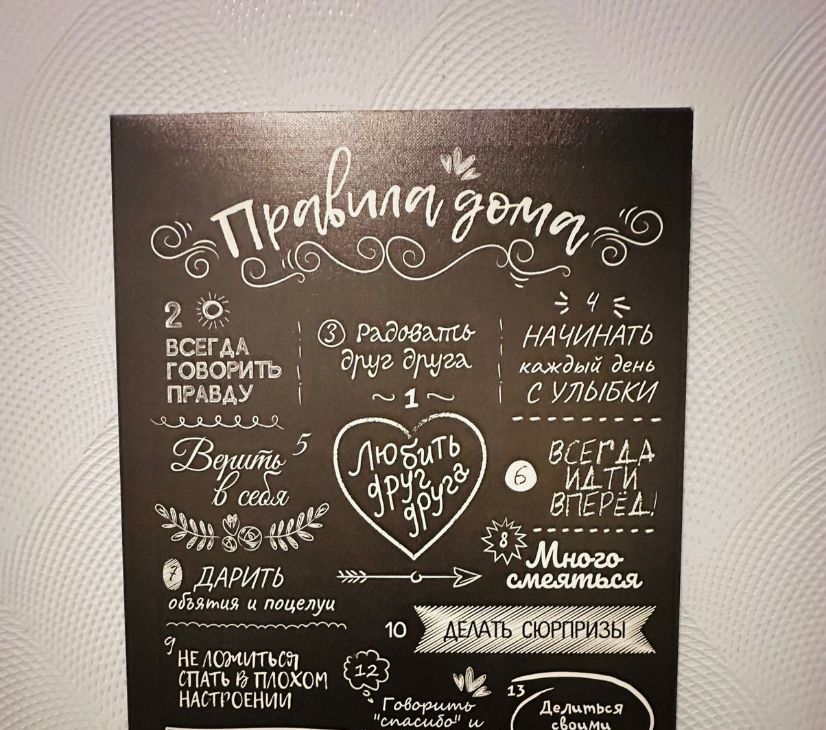 Правила дома
2
ВСЕГДА
ГОВОРИТЬ
ПРАВДУ
3 Радовать
друг друга
4
НАЧИНАТЬ
каждый день
С УЛЫБКИ
~ 1 ~
Любить
друг
друга
5
Верить
в себя
6
ВСЕГДА
ИДТИ
ВПЕРЁД!
7 ДАРИТЬ
объятия и поцелуи
8
Много
смеяться
9
НЕ ЛОЖИТЬСЯ
СПАТЬ В ПЛОХОМ
НАСТРОЕНИИ
10 ДЕЛАТЬ СЮРПРИЗЫ
12
Говорить
"спасибо" и
13
Делиться
своими